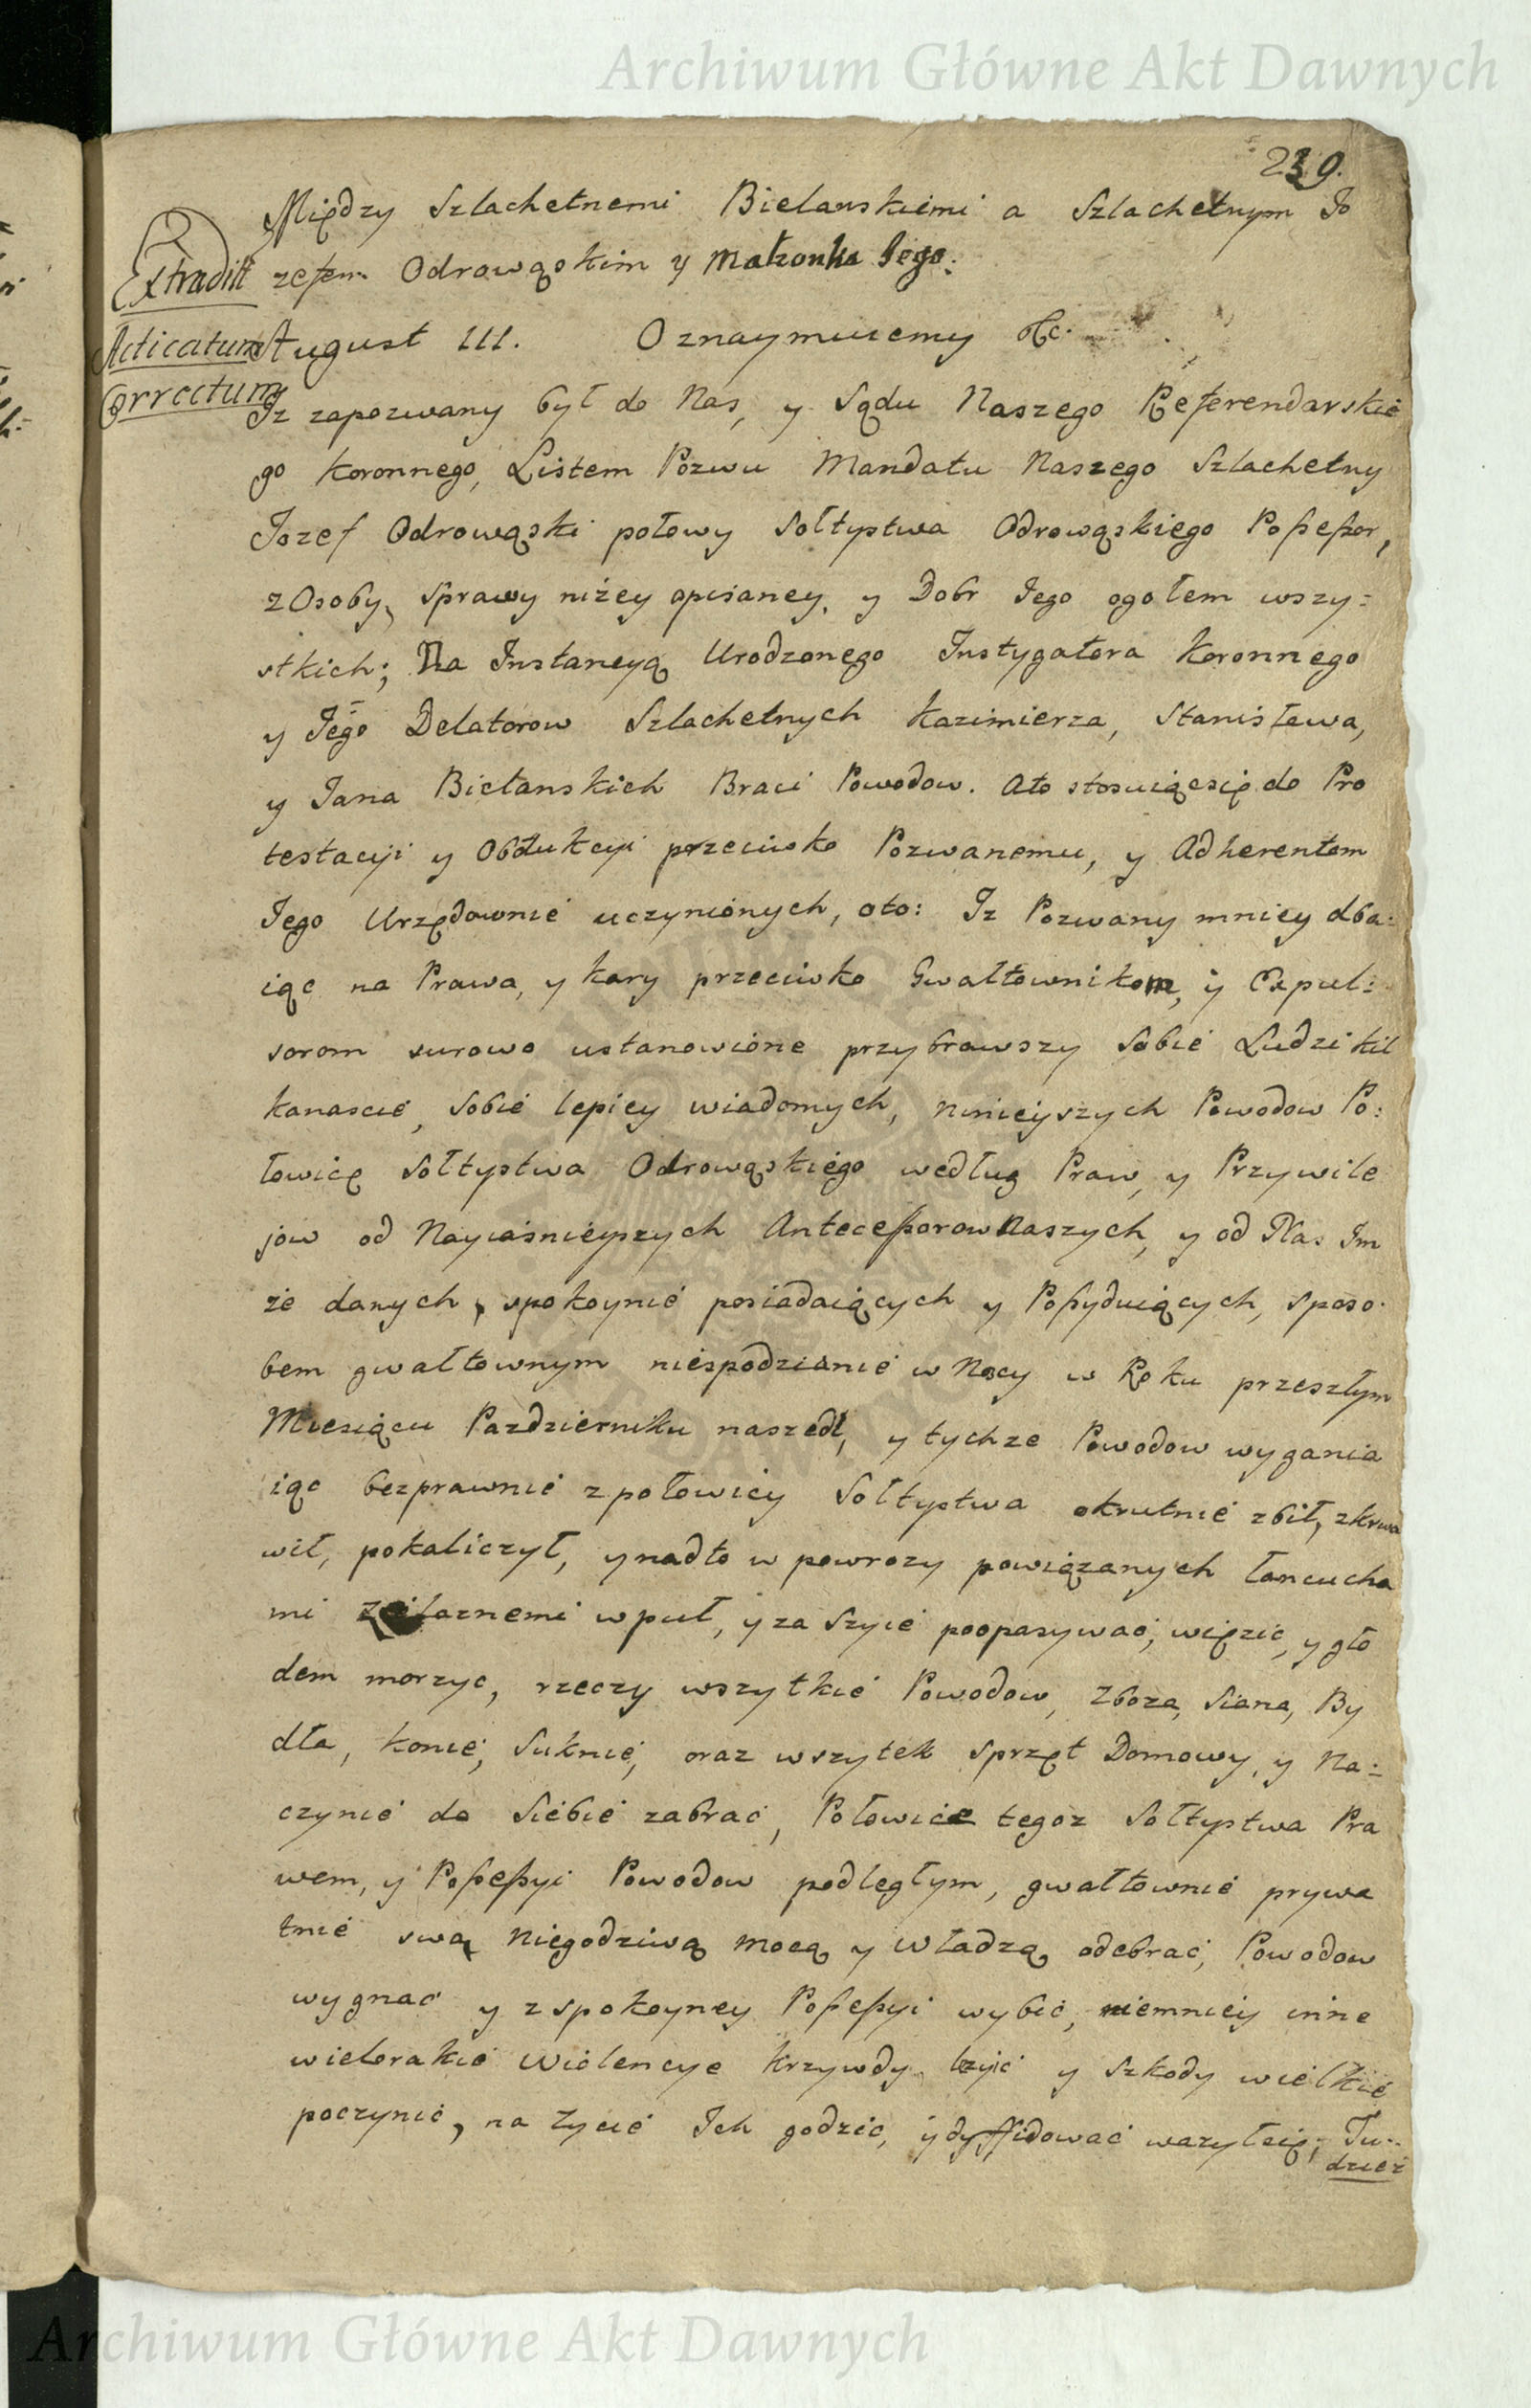 Archiwum Główne Akt Dawnych
239.
Między Szlachetnemi Bielanskiemi a Szlachetnym Jo
zefem Odrowąskim y Małzonka Jego.
Extradit
Acticatum
Correctum
August III. Oznaymuiemy &c.
Jz zapozwany był do Nas, y Sądu Naszego Referendarskie
go Koronnego, Listem Pozwu Mandatu Naszego Szlachetny
Jozef Odrowąski połowy Sołtystwa Odrowąskiego Possessor,
z Osoby, sprawy niżey opisaney, y Dobr Jego ogołem wszy=
stkich; Na Jnstancyą Urodzonego Jnstygatora Koronnego
y Jego Delatorow Szlachetnych Kazimierza, Stanisława,
y Jana Bielanskich Braci Powodow. Ato stosuiącsię do Pro
testacyi y Obdukcyi przeciwko Pozwanemu, y Adherentom
Jego Urzędownie uczynionych, oto: Jz Pozwany mniey dba=
iąc na Prawa, y kary przeciwko Gwałtownikom, y Expul=
sorom surowo ustanowione przybrawszy Sobie Ludzi kil
kanascie, sobie lepiey wiadomych, ninieyszych Powodow Po=
łowicę Sołtystwa Odrowąskiego według Praw, y Przywile
jow od Nayiaśnieyszych Antecessorow Naszych, y od Nas Jm
że danych, spokoynie posiadaiących y Possyduiących, sposo=
bem gwałtownym niespodzianie w Nocy w Roku przeszłym
Miesiącu Pazdzierniku naszedł, y tychze Powodow wygania
iąc bezprawnie z połowicy Sołtystwa okrutnie zbił, zkrwa
wił, pokaliczył, y nadto w powrozy powiązanych łancucha
mi Zelaznemi w puł, y za Szyie poopasywać, więzic, y gło
dem morzyc, rzeczy wszytkie Powodow, Zboza, Siana, By
dła, Konie, Suknie, oraz wszytek sprzęt Domowy, y Na=
czynie do Siebie zabrać, Połowice tegoz Sołtystwa Pra
wem, y Possessyi Powodow podległym, gwałtownie prywa
tnie swą niegodziwą mocą y Władzą odebrać, Powodow
wygnać y z spokoyney Possessyi wybić, niemniey inne
wielorakie wiolencye krzywdy y Szkody wielkie
poczynić, na Zycie Jch godzic, y dyffidować wazyłsię; Tu=
dzież
Archiwum Główne Akt Dawnych